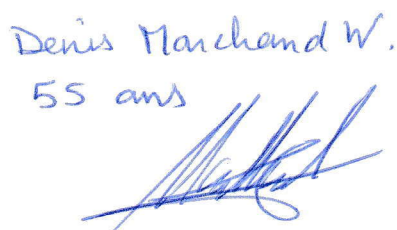 Denis Marchand W.
55 ans